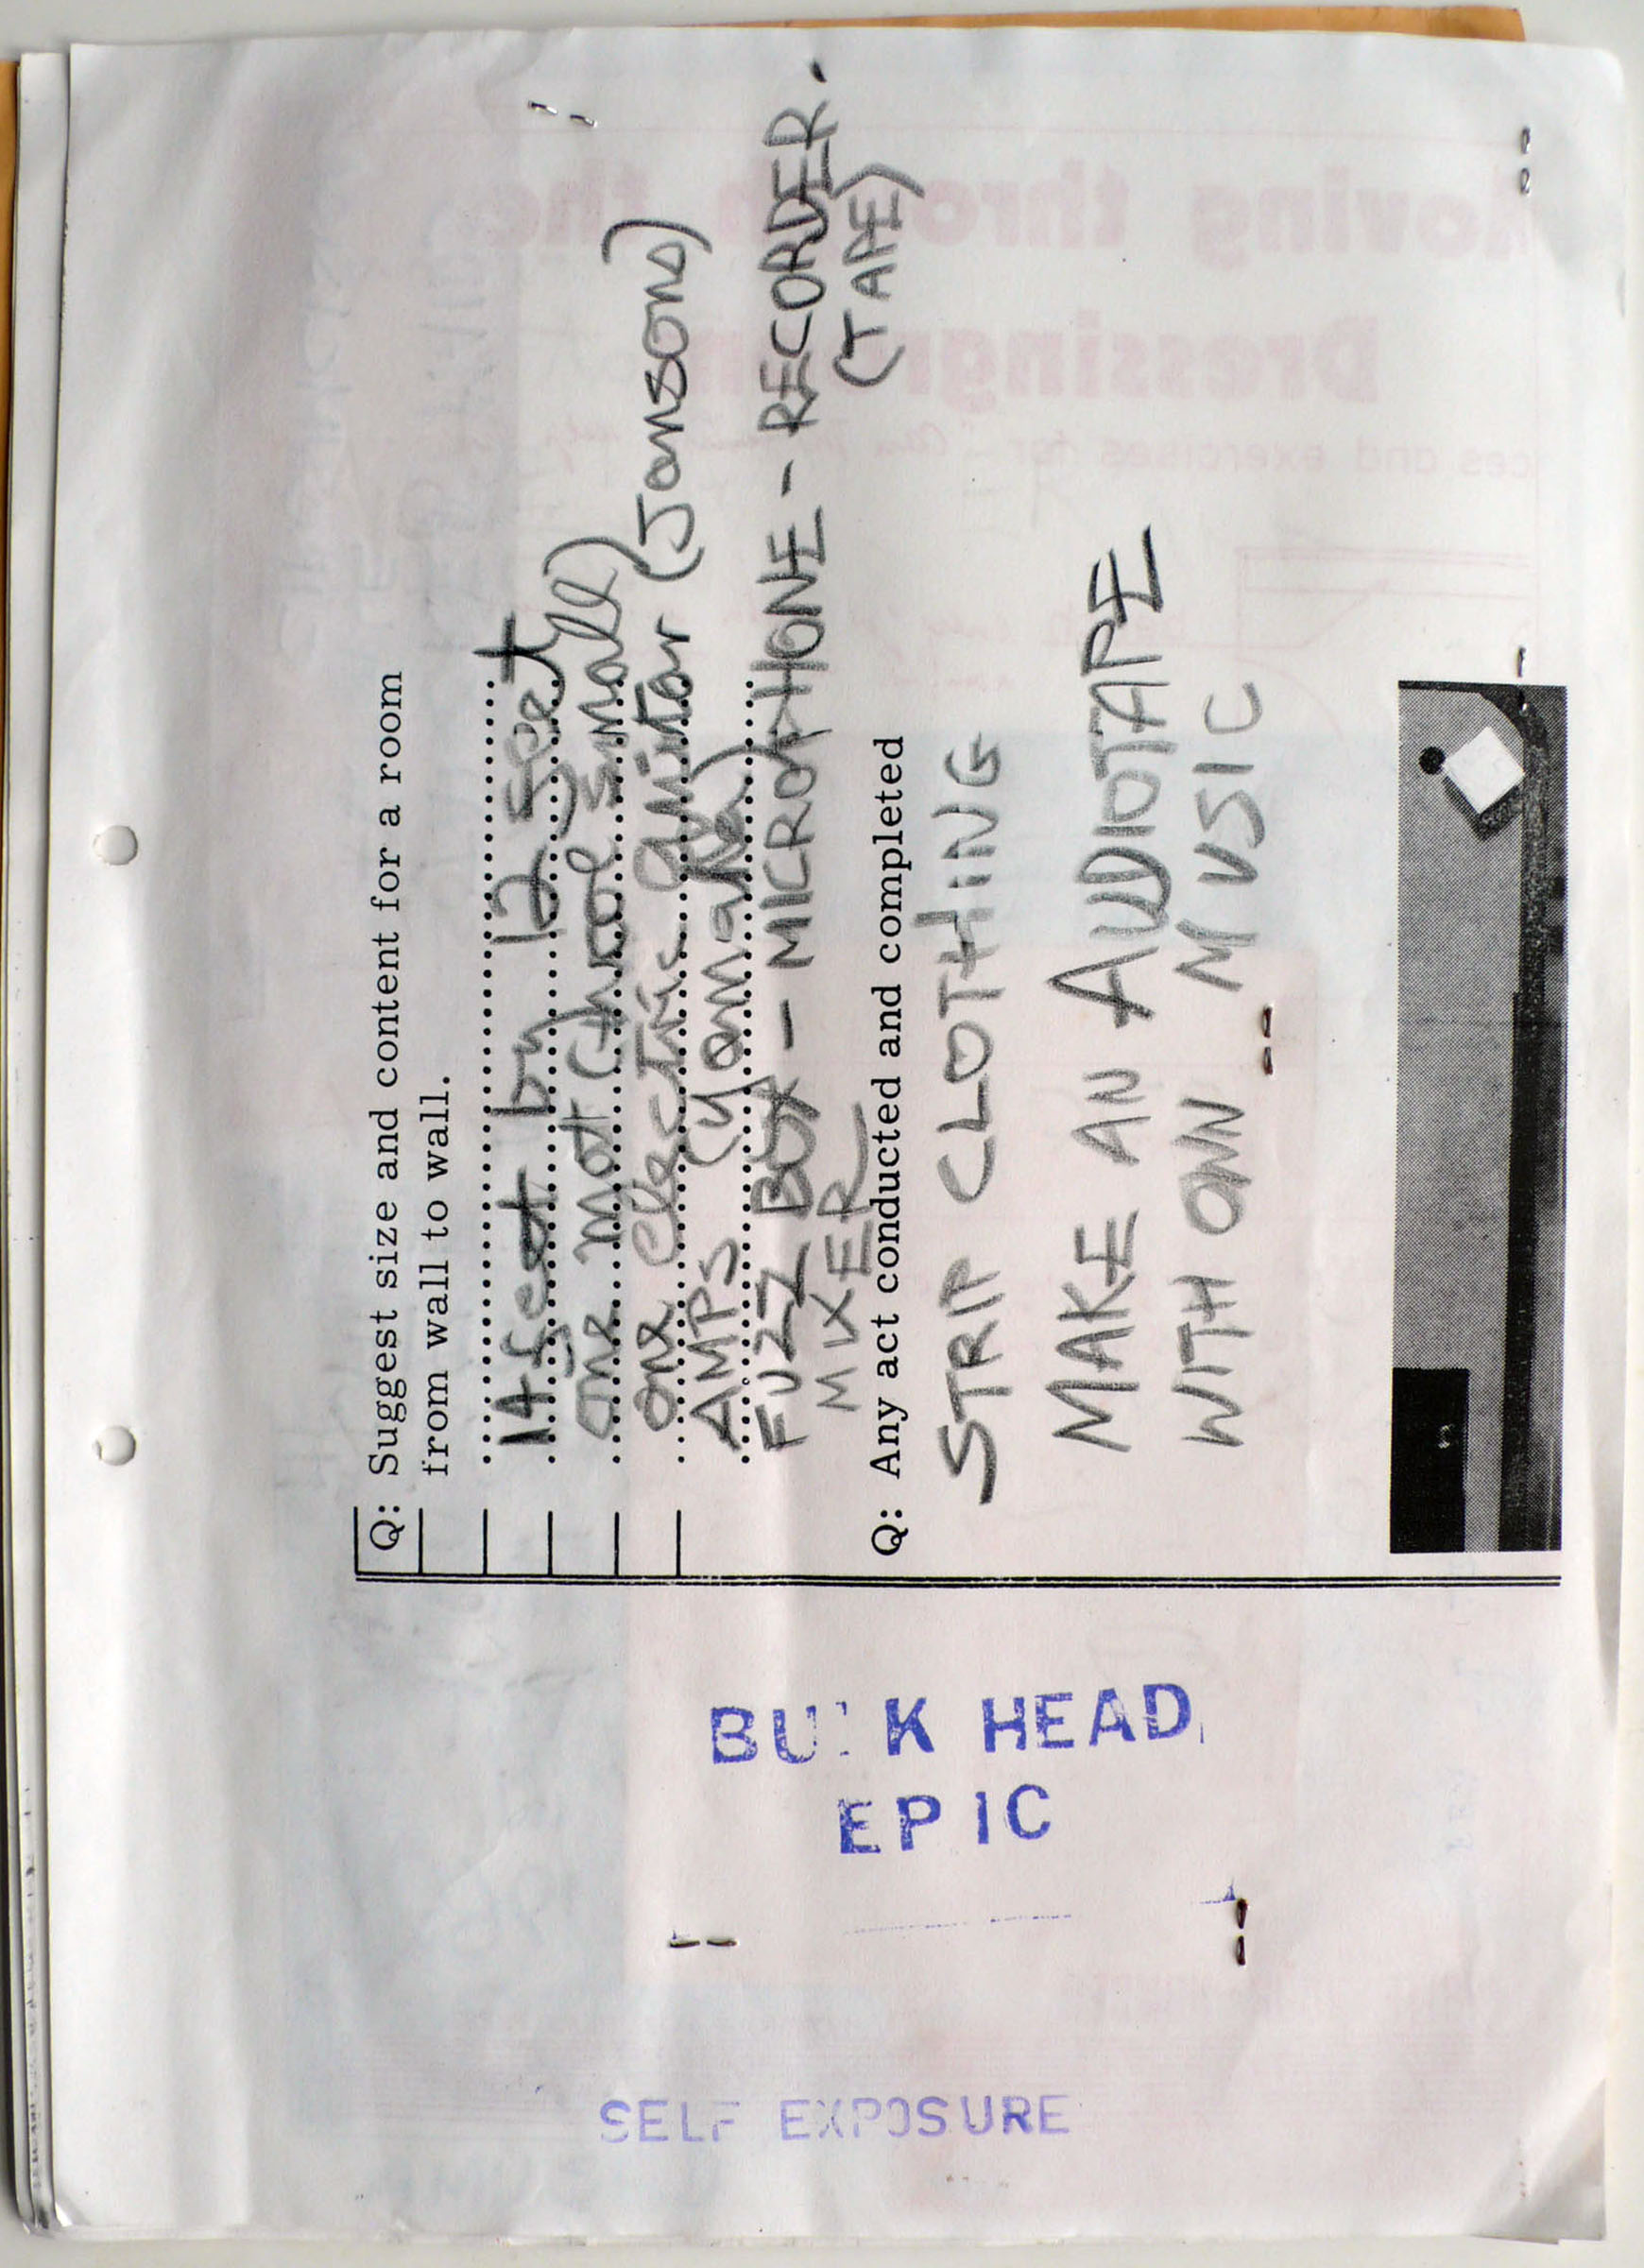 Q: Suggest size and content for a room
from wall to wall.
14 feet by 12 feet
one mat (three small)
one electric guitar (Jansons)
AMPS (Yamaha)
FUZZ BOX - MICROPHONE - RECORDER.
MIXER (TAPE)
Q: Any act conducted and completed
STRIP CLOTHING
MAKE AN AUDIOTAPE
WITH OWN MUSIC
BU K HEAD
EPIC
SELF EXPOSURE
Moving through the
Dressingroom
and exercises for